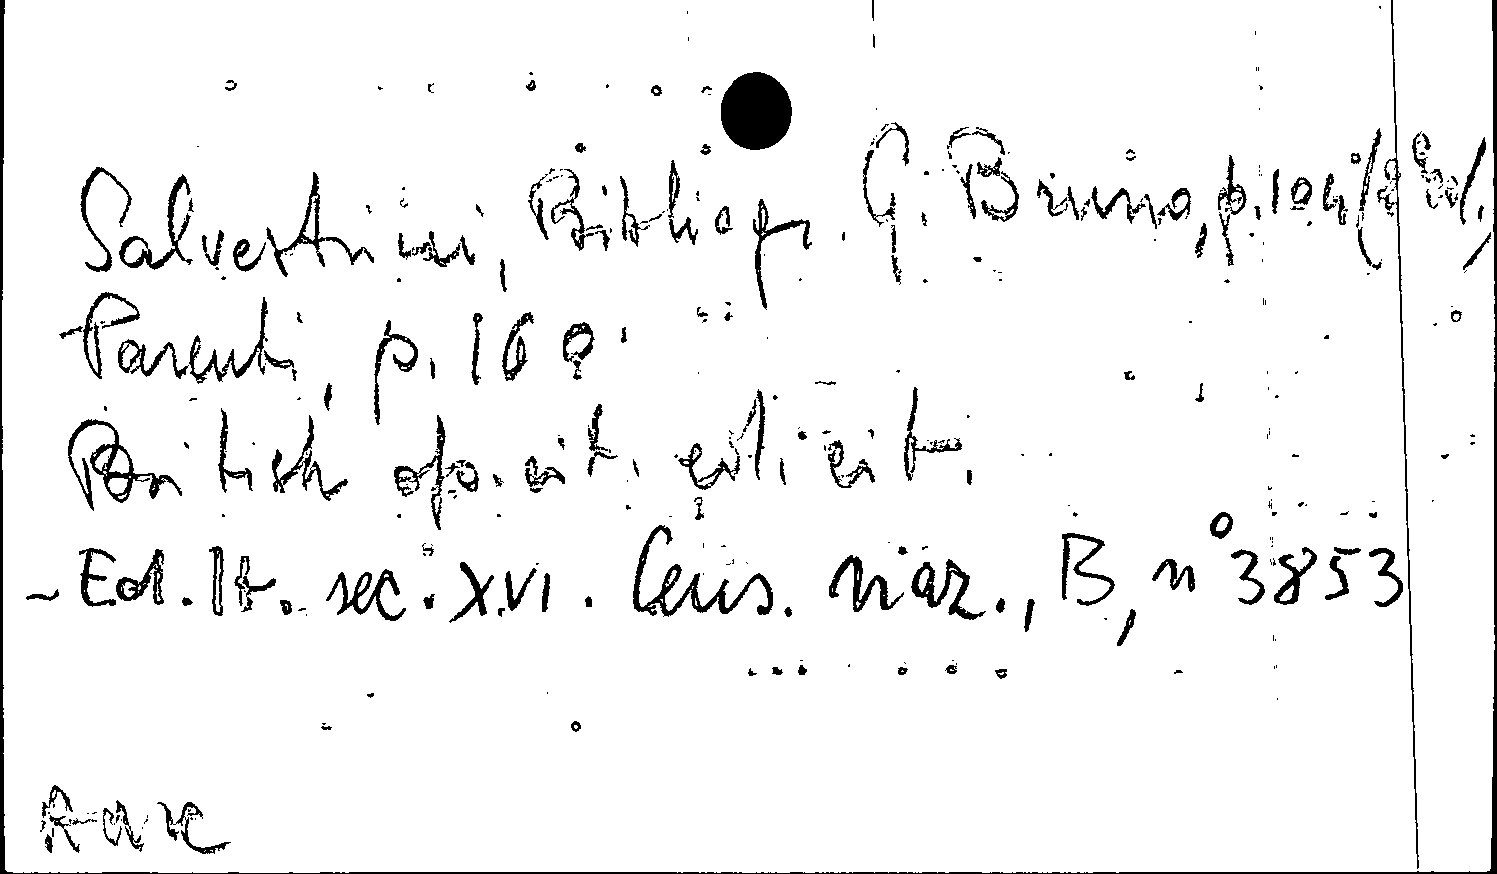 Salvestrini, Bibliogr. G. Bruno, p. 104 (2ª ed.),
Parenti, p. 160.
British op. cit. ed. cit.
- Ed. It. sec. XVI. Cens. naz., B, n° 3853